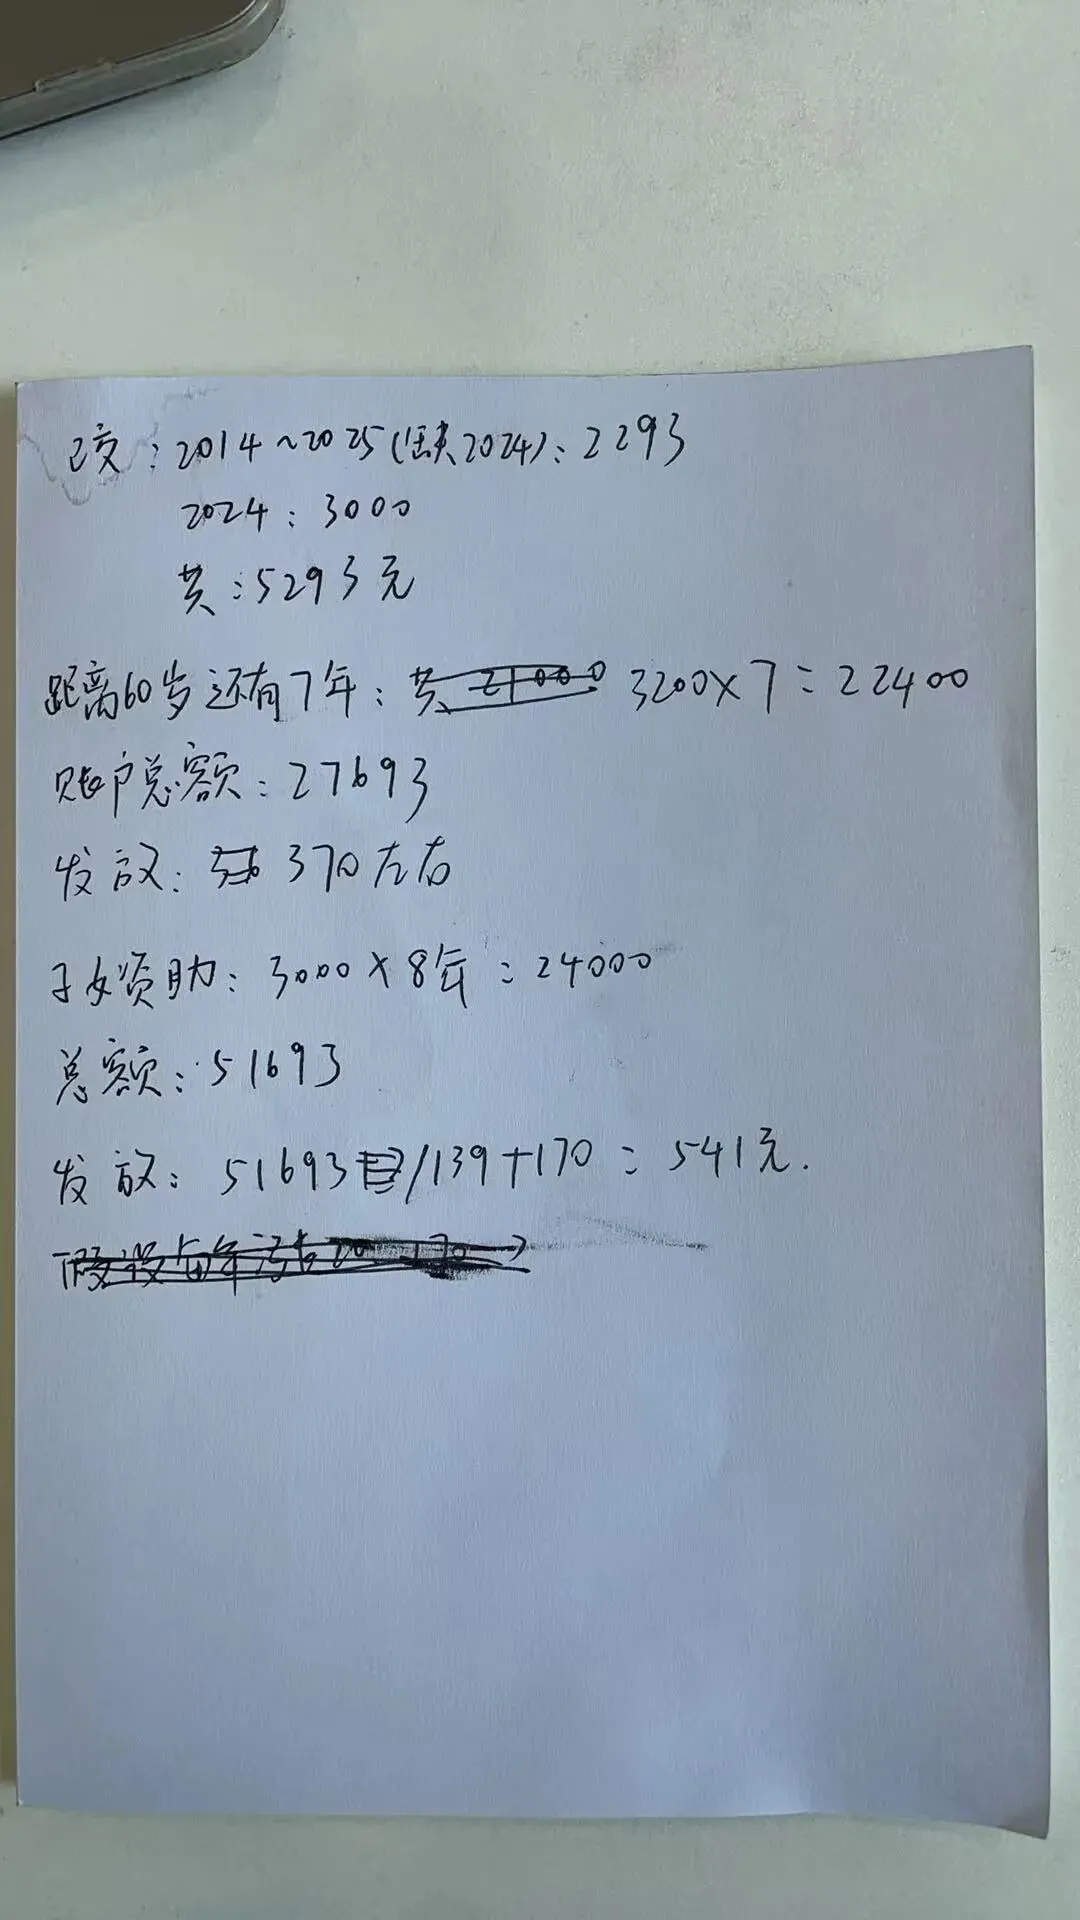 已交：2014~2025(缺2024)：2293
2024：3000
共：5293元
距离60岁还有7年：共 3200×7=22400
账户总额：27693
发放：370左右
子女资助：3000×8年=24000
总额：51693
发放：51693/139+170=541元.